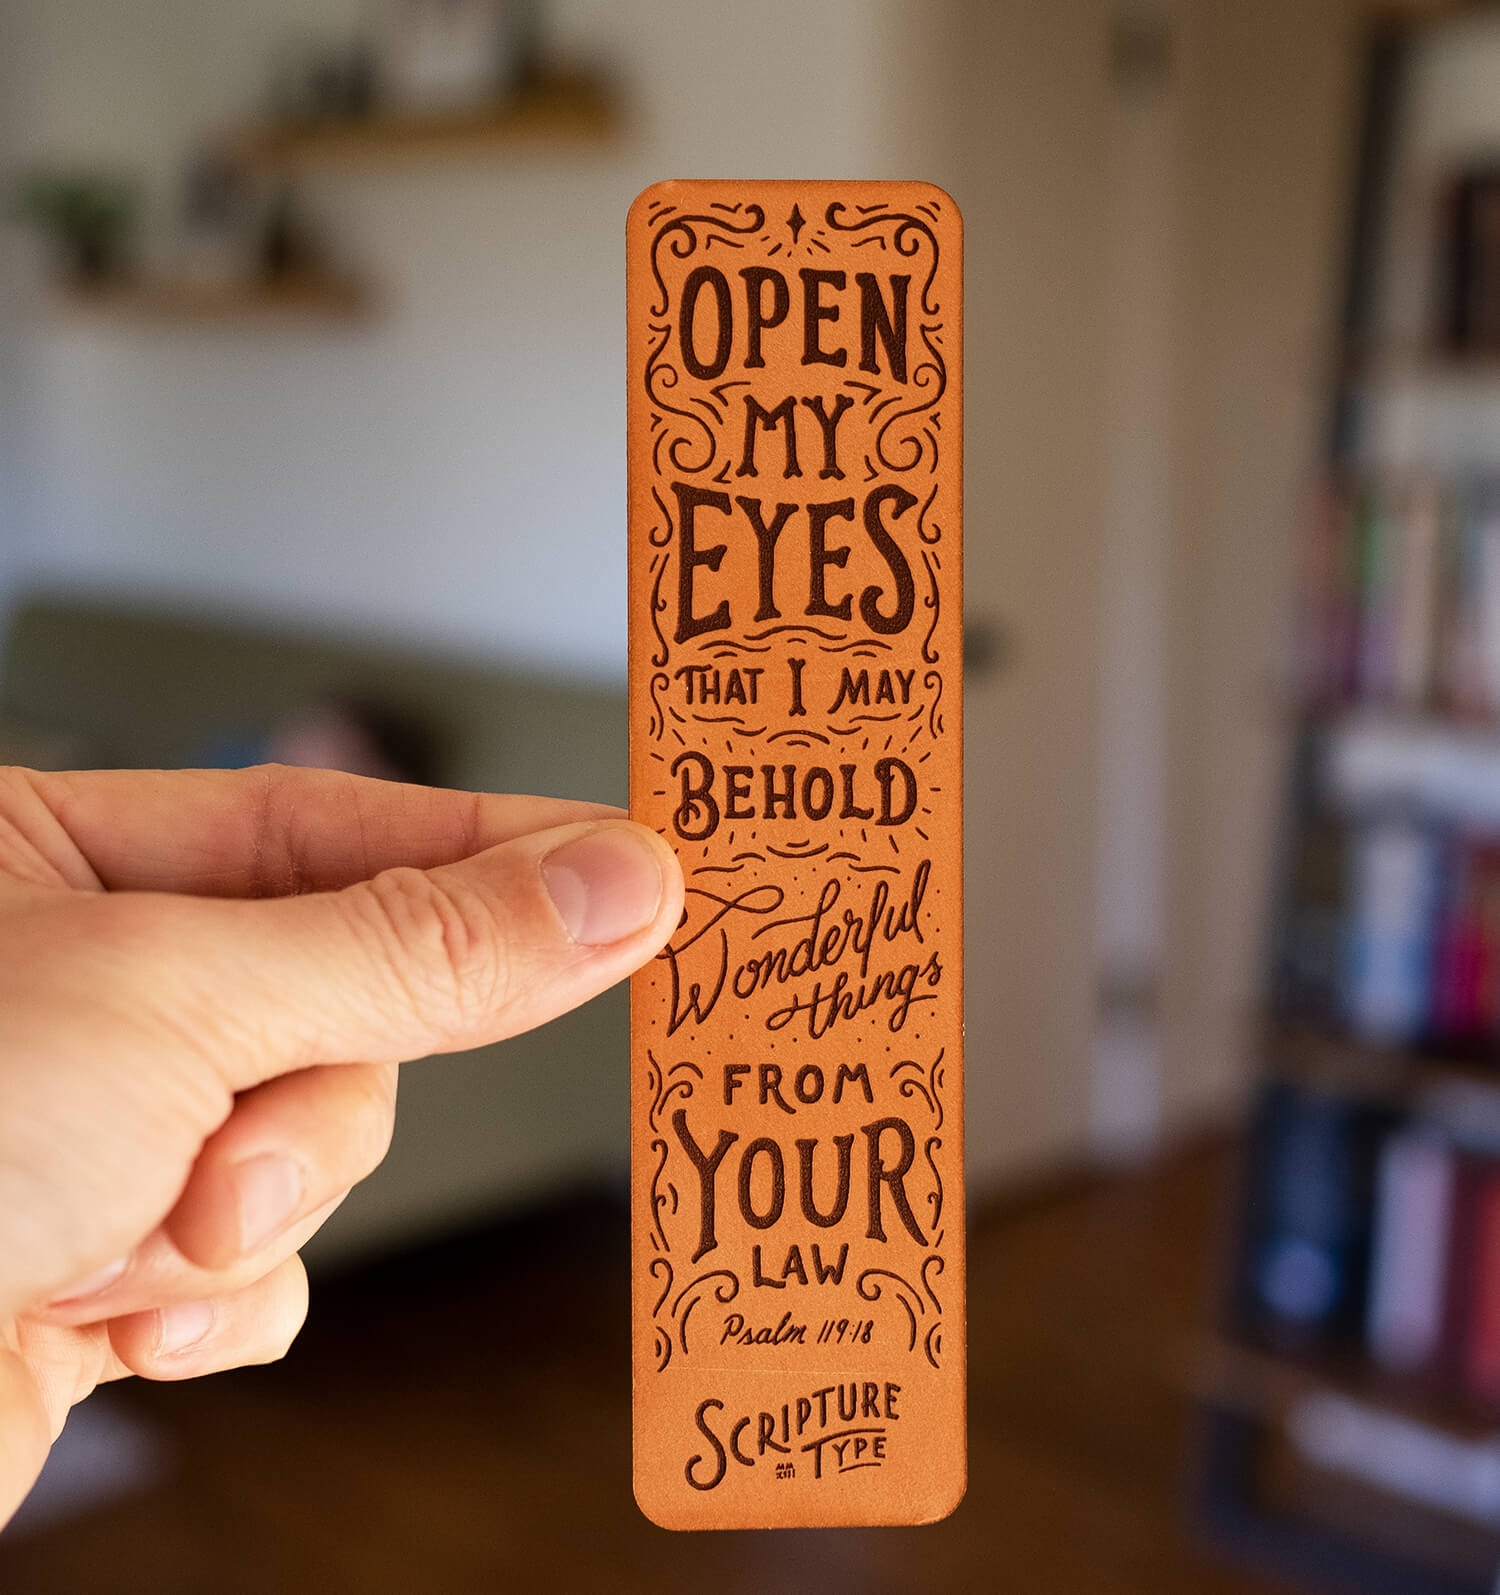 OPEN
MY
EYES
THAT I MAY
BEHOLD
Wonderful
things
FROM
YOUR
LAW
Psalm 119:18
SCRIPTURE
TYPE
MM
XIII